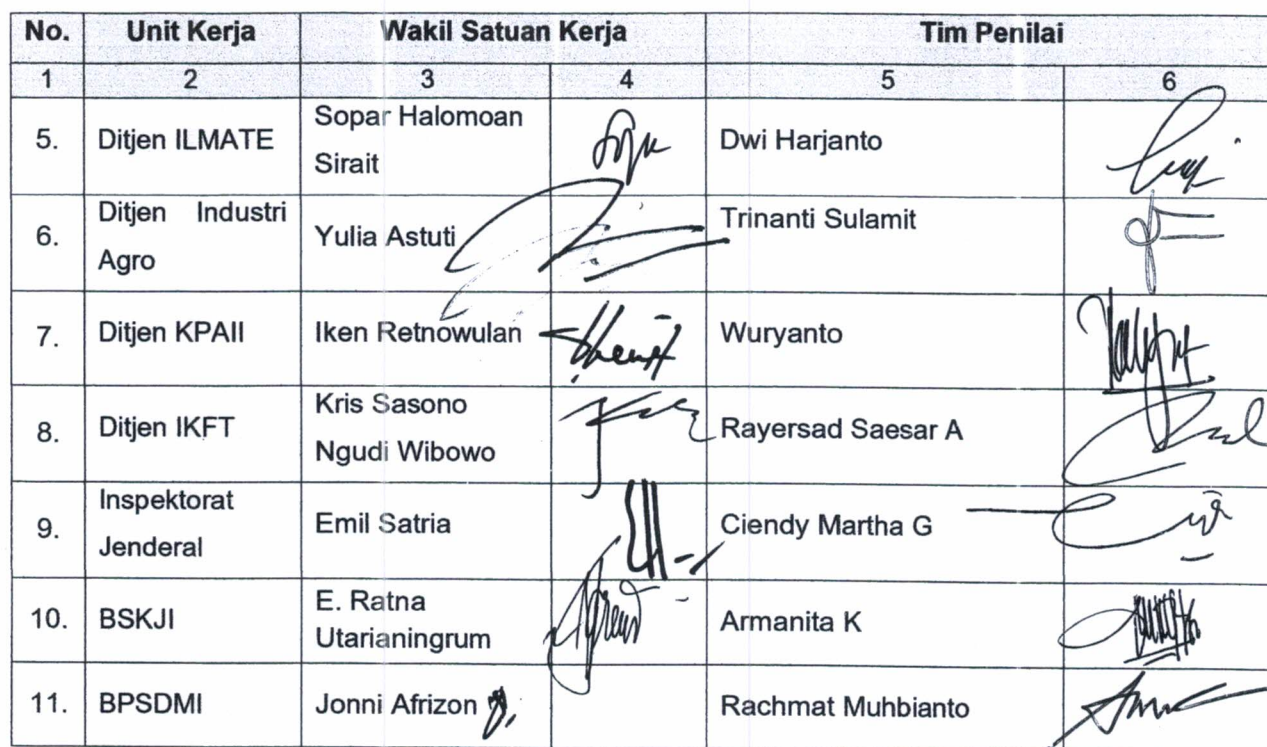 No. Unit Kerja Wakil Satuan Kerja Tim Penilai
1 2 3 4 5 6
5. Ditjen ILMATE Sopar Halomoan Sirait Dwi Harjanto
6. Ditjen Industri Agro Yulia Astuti Trinanti Sulamit
7. Ditjen KPAII Iken Retnowulan Wuryanto
8. Ditjen IKFT Kris Sasono Ngudi Wibowo Rayersad Saesar A
9. Inspektorat Jenderal Emil Satria Ciendy Martha G
10. BSKJI E. Ratna Utarianingrum Armanita K
11. BPSDMI Jonni Afrizon Rachmat Muhbianto